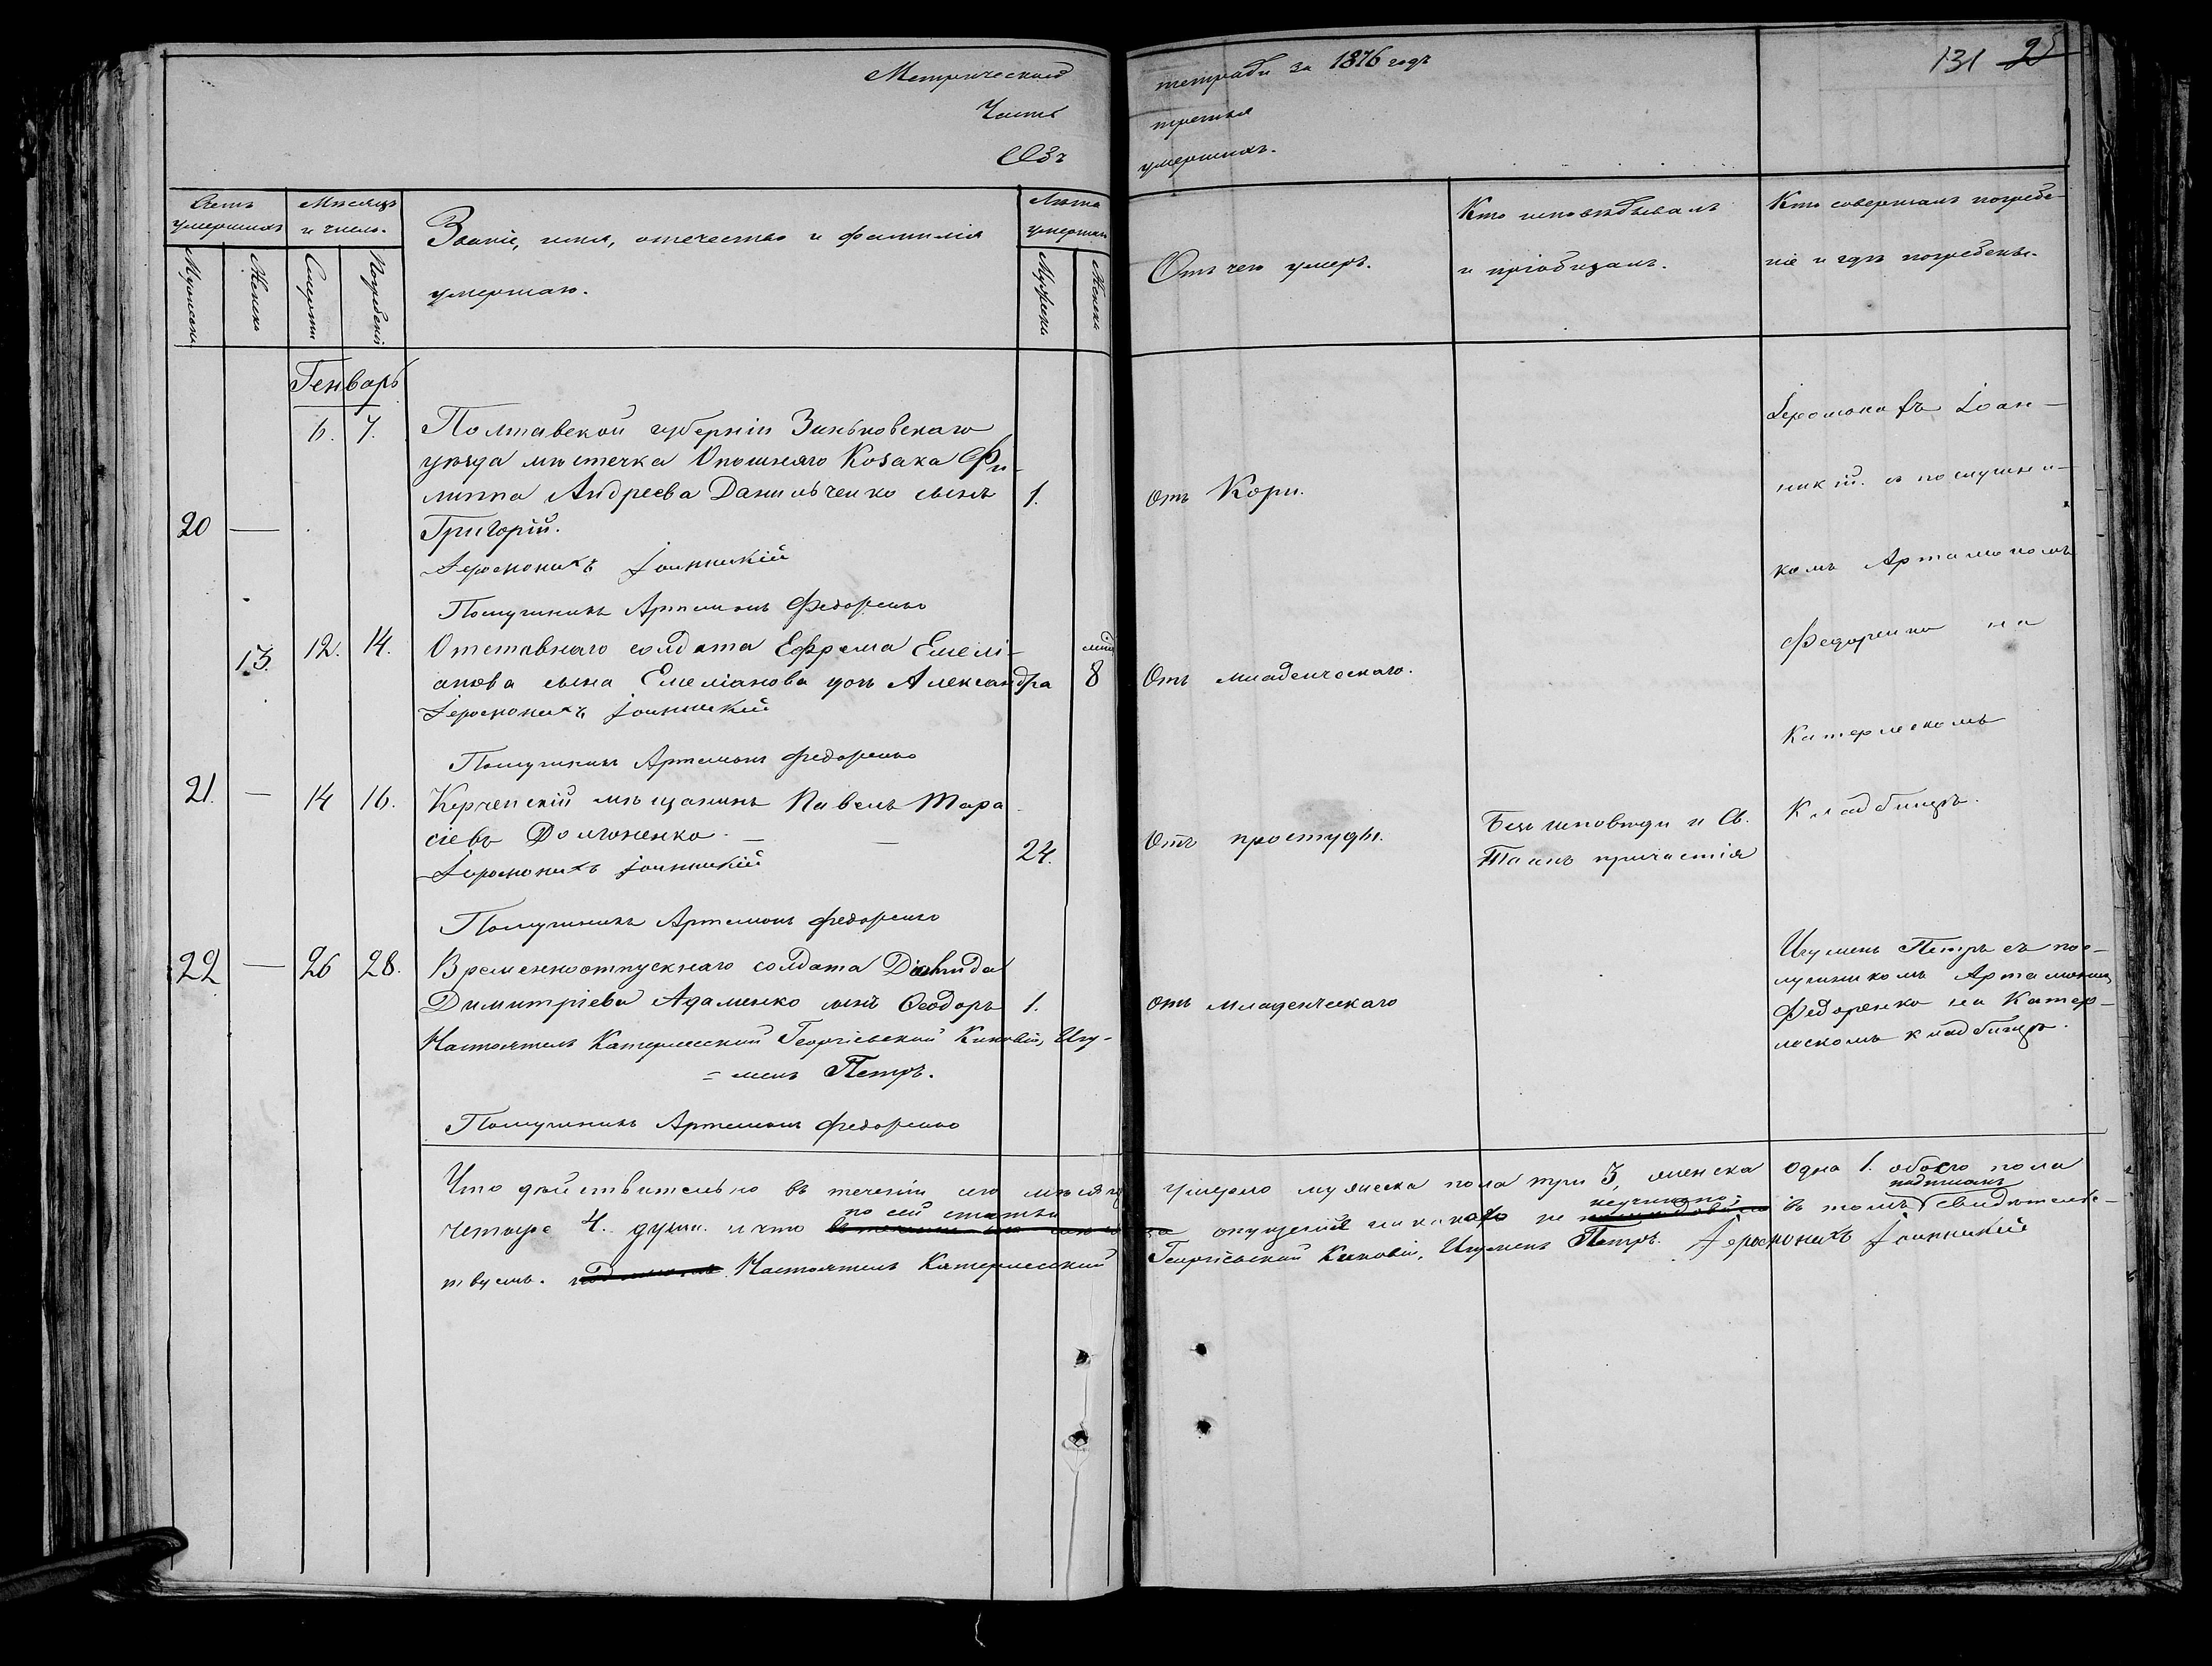 Метрической
Часть
Объ
тетради за 1876 годъ
третья
умершихъ.
131 95
Счетъ умершихъ
Мѣсяцъ и число.
Званіе, имя, отечество и фамилія
умершаго.
Лѣта умершаго
Мужеска
Женска
Смерти
Погребенія
Мужеска
Женска
Отъ чего умеръ.
Кто исповѣдывалъ
и пріобщалъ.
Кто совершалъ погребе-
ніе и гдѣ погребены.
Генварь
6. 7. Полтавской губерніи Зиньковскаго
уѣзда мѣстечка Опошняго Козака Фи-
липпа Андреева Данильченко сынъ 1. отъ Кори.
20 — Григорій.
Іеромонахъ Іоанникій
Послушникъ Артемонъ Федоренко
Іеромонахъ Іоан-
никій съ послушни-
комъ Артамономъ
Федоренко на
Катерлескомъ
Кладбищѣ.
13. 12. 14. Отставнаго солдата Ефрема Емелі-
анова сына Емеліанова дочь Александра 8 Отъ младенческаго.
Іеромонахъ Іоанникій
Послушникъ Артемонъ Федоренко
21. — 14 16. Керченскій мѣщанинъ Павелъ Тара
сіевъ Долгоненко — — 24. Отъ простуды. Безъ исповѣди и Св.
Таинъ причастія
Іеромонахъ Іоанникій
Послушникъ Артемонъ Федоренко
22 — 26 28. Временноотпускнаго солдата Давида
Димитріева Адаменко сынъ Ѳеодоръ 1. отъ младенческаго
Игуменъ Петръ съ пос-
лушникомъ Артамономъ
Федоренко на Катер-
лескомъ кладбищѣ.
Настоятель Катерлесской Георгіевской Киновіи, Игу-
= менъ Петръ.
Послушникъ Артемонъ Федоренко
Что дѣйствительно въ теченіи сего мѣсяца умерло мужеска пола три 3, женска одна 1. обоего пола
четыре 4. души. и что по сей статьи опущенія никакого не неучинено въ томъ подписомъ свидѣтельс-
твуемъ. Настоятель Катерлесской Георгіевской Киновіи, Игуменъ Петръ. Іеромонахъ Іоанникій